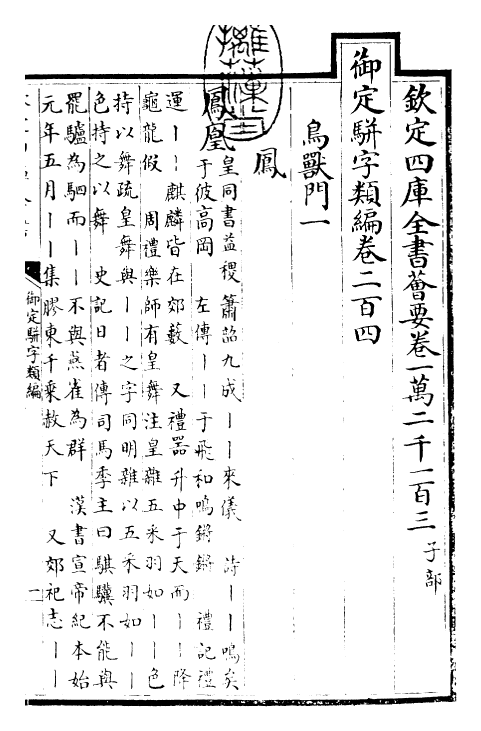 欽定四庫全書薈要卷一萬二千二百三 子部
御定駢字類編卷二百四
鳥獸門一
鳳
鳳凰 皇同書益稷簫韶九成丨丨來儀 詩丨丨鳴矣
于彼高岡 左傳丨丨于飛和鳴鏘鏘 禮記禮
運丨丨麒麟皆在郊藪 又禮器升中于天而丨丨降
龜龍假 周禮樂師有皇舞注皇雜五采羽如丨丨色
持以舞疏皇舞與丨丨之字同明雜以五采羽如丨丨
色持之以舞 史記日者傳司馬季主曰騏驥不能與
罷驢為駟而丨丨不與燕雀為群 漢書宣帝紀本始
元年五月丨丨集膠東千乘赦天下 又郊祀志丨丨
御定駢字類編
一